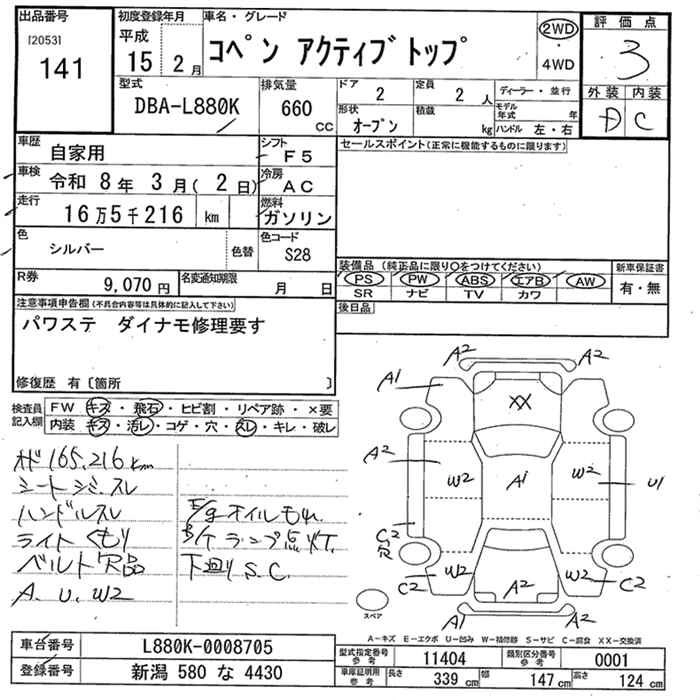 出品番号
[2053]
141
初度登録年月
平成
15 2月
車名・グレード
コペン アクティブトップ
2WD
・
4WD
評価点
3
外装 内装
D C
型式
DBA-L880K
排気量
660
CC
ドア
2
定員
2 人
形状
オープン
積載
kg
ディーラー・並行
モデル年式 年
ハンドル 左・右
車歴
自家用
シフト
F5
車検
令和 8年 3月( 2日)
冷房
AC
走行
16万5千216 km
燃料
ガソリン
色
シルバー
色替
色コード
S28
R券
9,070円
名変通知期限
月 日
セールスポイント(正常に機能するものに限ります)
装備品(純正品に限り○をつけてください)
PS PW ABS エアB AW
SR ナビ TV カワ
新車保証書
有・無
後日品
注意事項申告欄(不具合内容等は具体的に記入して下さい)
パワステ ダイナモ修理要す
修復歴 有〔箇所 〕
検査員
記入欄
FW キズ・飛石・ヒビ割・リペア跡・×要
内装 キズ・汚レ・コゲ・穴・スレ・キレ・破レ
オド165,216km
シートシミ、スレ
ハンドルスレ
ライトくもり
ベルト欠品
A. U. W2
E/gオイルもれ
B/Tランプ点灯
下回りS.C.
A2 A2
A1 A1
XX
A2 W2 A1 W2 U1
C2
R
C2 W2 A2 W2 C2
A1 A2
スペア
A-キズ E-エクボ U-凹み W-補修跡 S-サビ C-腐食 XX-交換済
車台番号
L880K-0008705
登録番号
新潟 580 な 4430
型式指定番号
参考
11404
類別区分番号
参考
0001
車庫証明用
参考
長さ 339 cm 幅 147 cm 高さ 124 cm